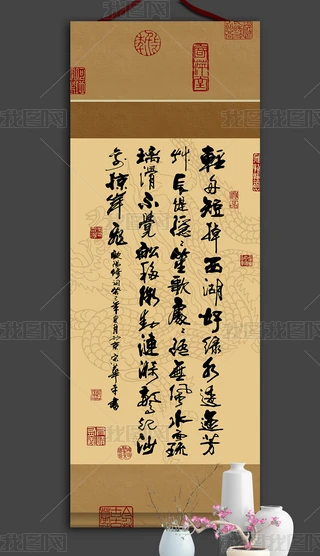 輕舟短棹西湖好绿水逶迤芳
艸長堤隱〻笙歌處〻随無風水面琉
璃滑不覺船移微動漣漪驚起沙
禽掠岸飛
歐陽修詞
我图网